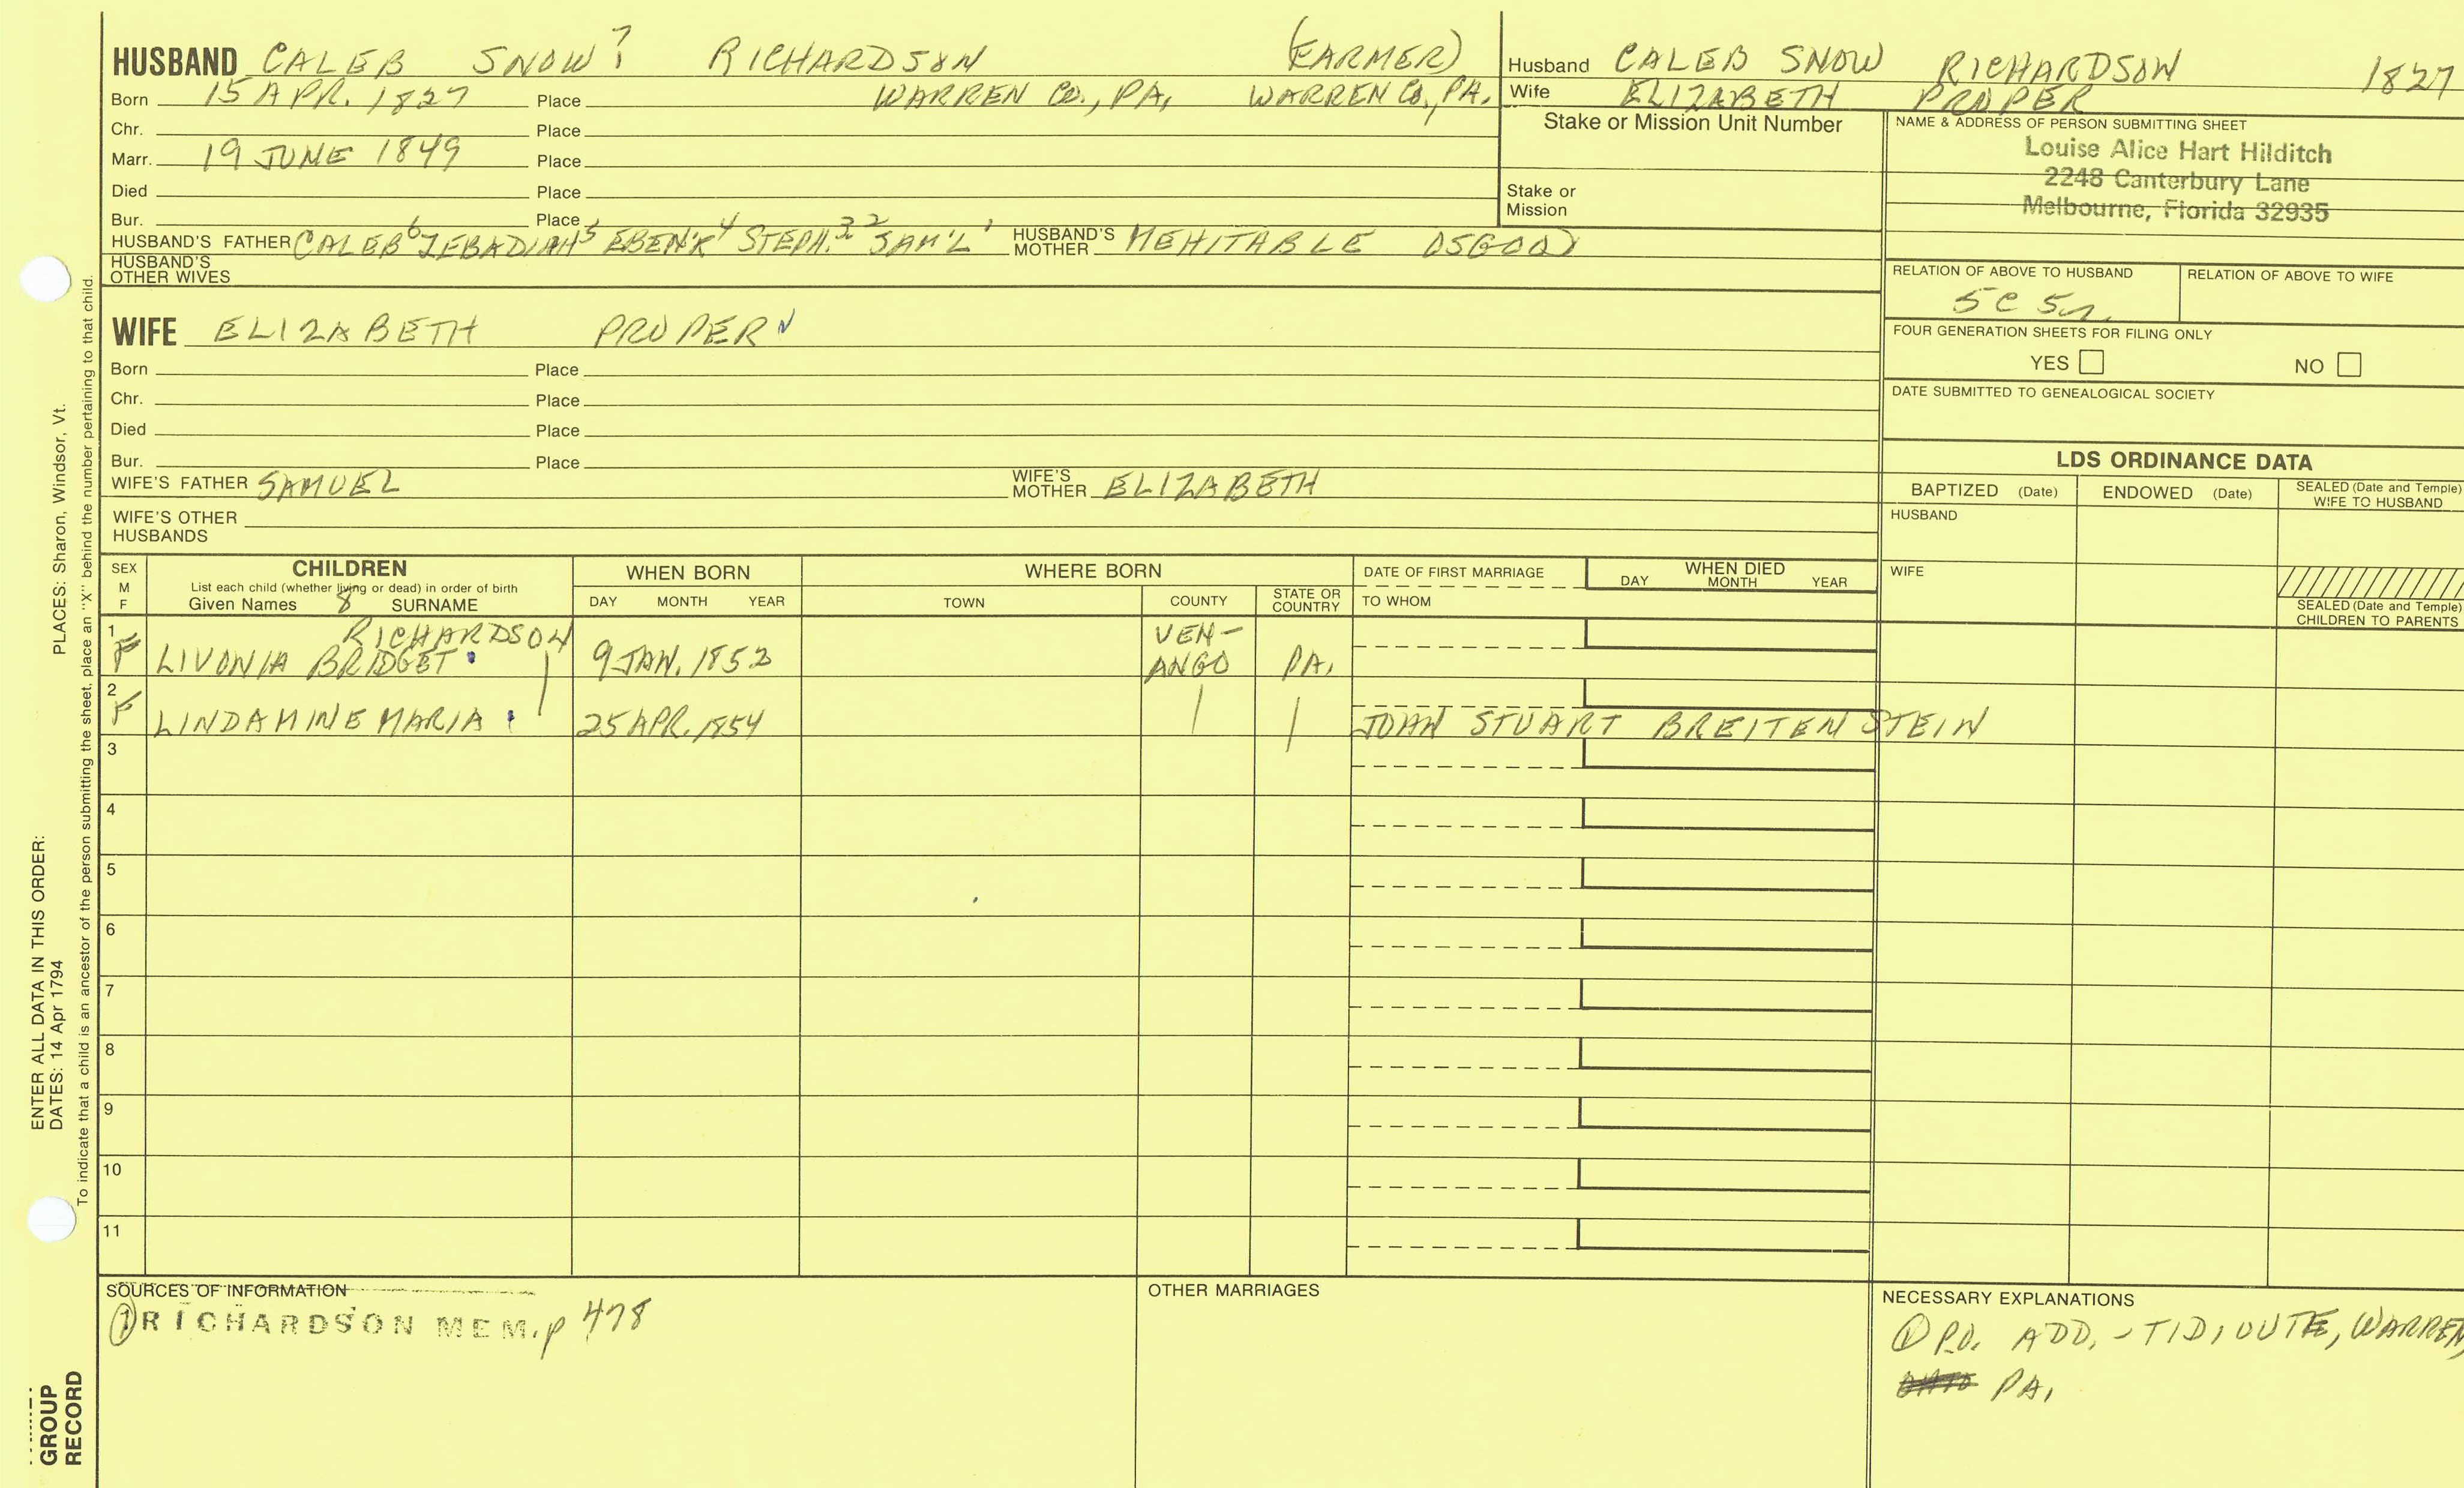 HUSBAND CALEB SNOW? RICHARDSON (FARMER)
Born 15 APR. 1827 Place WARREN CO., PA, WARREN CO., PA.
Chr. Place
Marr. 19 JUNE 1849 Place
Died Place
Bur. Place
HUSBAND'S FATHER CALEB6 JEBADIAH5 EBEN'R4 STEPH.3 2 SAM'L1 HUSBAND'S MOTHER MEHITABLE OSGOOD
HUSBAND'S OTHER WIVES
Husband CALEB SNOW RICHARDSON 1827
Wife ELIZABETH PROPER
Stake or Mission Unit Number
Stake or Mission
NAME & ADDRESS OF PERSON SUBMITTING SHEET
Louise Alice Hart Hilditch
2248 Canterbury Lane
Melbourne, Florida 32935
RELATION OF ABOVE TO HUSBAND RELATION OF ABOVE TO WIFE
5C 5
FOUR GENERATION SHEETS FOR FILING ONLY
YES NO
DATE SUBMITTED TO GENEALOGICAL SOCIETY
WIFE ELIZABETH PROPER
Born Place
Chr. Place
Died Place
Bur. Place
WIFE'S FATHER SAMUEL WIFE'S MOTHER ELIZABETH
WIFE'S OTHER HUSBANDS
LDS ORDINANCE DATA
BAPTIZED (Date) ENDOWED (Date) SEALED (Date and Temple) WIFE TO HUSBAND
HUSBAND
WIFE
SEALED (Date and Temple) CHILDREN TO PARENTS
SEX M F
CHILDREN
List each child (whether living or dead) in order of birth
Given Names 8 SURNAME
WHEN BORN
DAY MONTH YEAR
WHERE BORN
TOWN COUNTY STATE OR COUNTRY
DATE OF FIRST MARRIAGE
TO WHOM
WHEN DIED
DAY MONTH YEAR
1 F LIVONIA BRIDGET RICHARDSON 9 JAN. 1852 VEN-ANGO PA.
2 F LINDAMINE MARIA 25 APR. 1854 JOHN STUART BREITENSTEIN
3
4
5
6
7
8
9
10
11
SOURCES OF INFORMATION
1 RICHARDSON MEM. p 478
OTHER MARRIAGES
NECESSARY EXPLANATIONS
1 P.O. ADD. - TIDIOUTE, WARREN,
PA.
ENTER ALL DATA IN THIS ORDER:
DATES: 14 Apr 1794 PLACES: Sharon, Windsor, Vt.
To indicate that a child is an ancestor of the person submitting the sheet, place an "X" behind the number pertaining to that child.
GROUP
RECORD